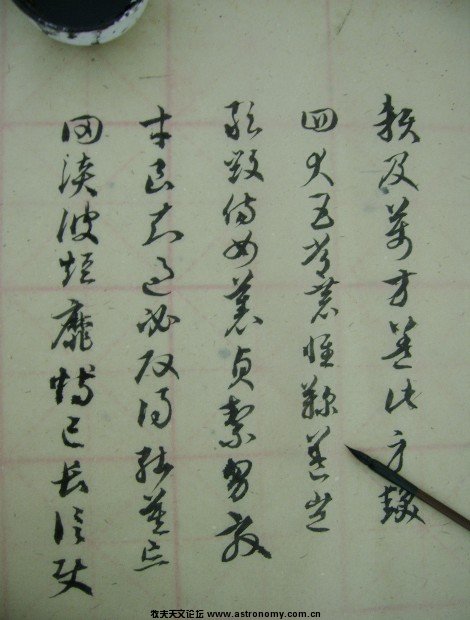 賴及萬方蓋此身髮
四大五常恭惟鞠養豈
敢毀傷女慕貞絜男效
才良知過必改得能莫忘
罔談彼短靡恃己長信使
牧夫天文论坛 www.astronomy.com.cn